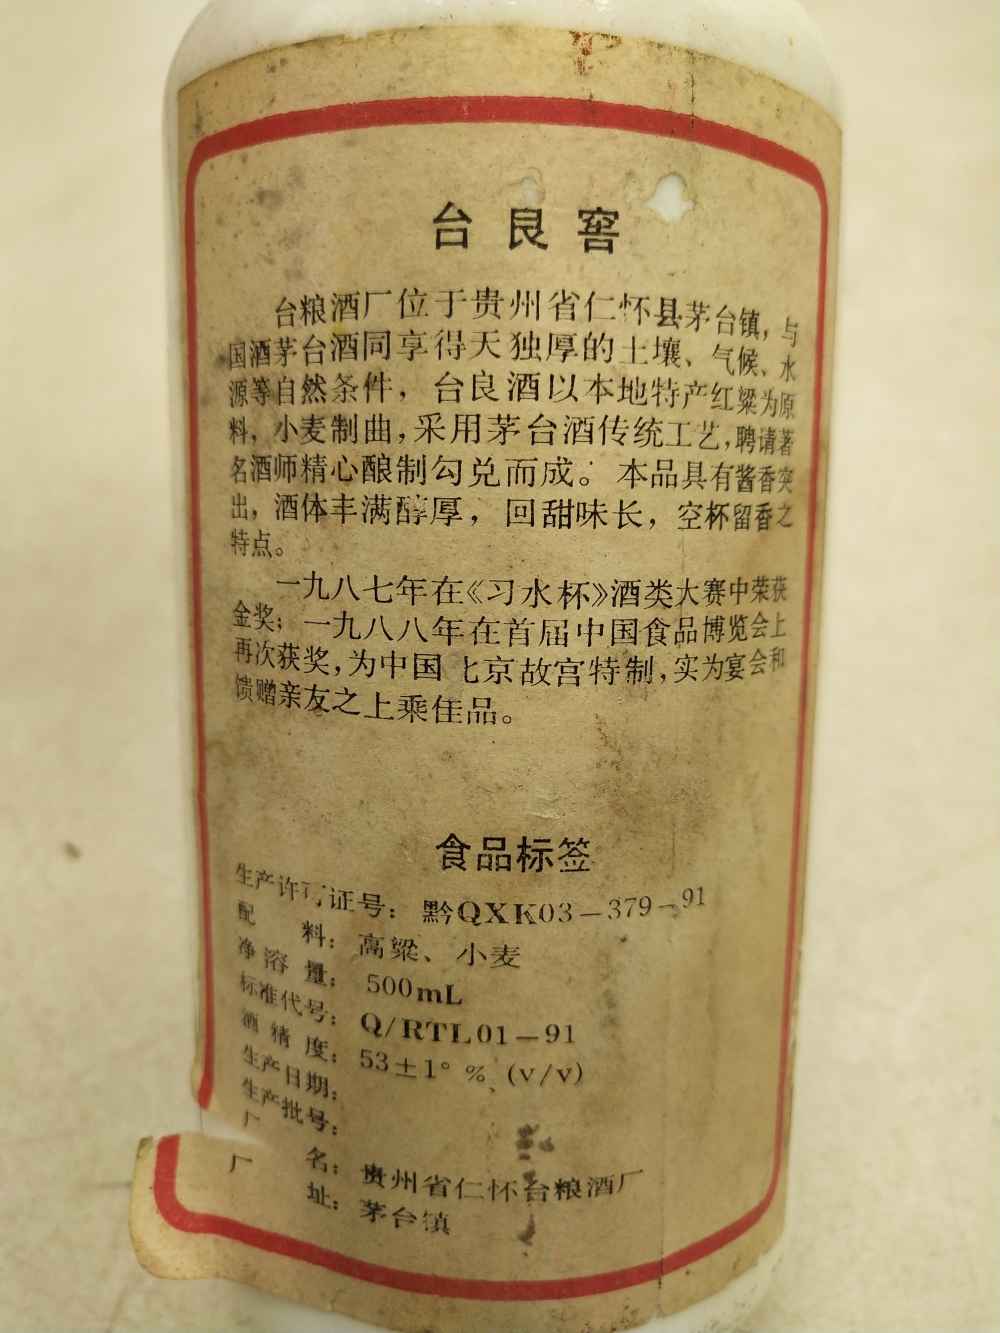 台良窖
台粮酒厂位于贵州省仁怀县茅台镇，与
国酒茅台酒同享得天独厚的土壤、气候、水
源等自然条件，台良酒以本地特产红粱为原
料，小麦制曲，采用茅台酒传统工艺，聘请著
名酒师精心酿制勾兑而成。本品具有酱香突
出，酒体丰满醇厚，回甜味长，空杯留香之
特点。
一九八七年在《习水杯》酒类大赛中荣获
金奖；一九八八年在首届中国食品博览会上
再次获奖，为中国北京故宫特制，实为宴会和
馈赠亲友之上乘佳品。
食品标签
生产许可证号：黔QXK03－379－91
配料：高粱、小麦
净溶量：500mL
标准代号：Q/RTL01－91
酒精度：53±1°％（v/v）
生产日期：
生产批号：
厂名：贵州省仁怀台粮酒厂
厂址：茅台镇